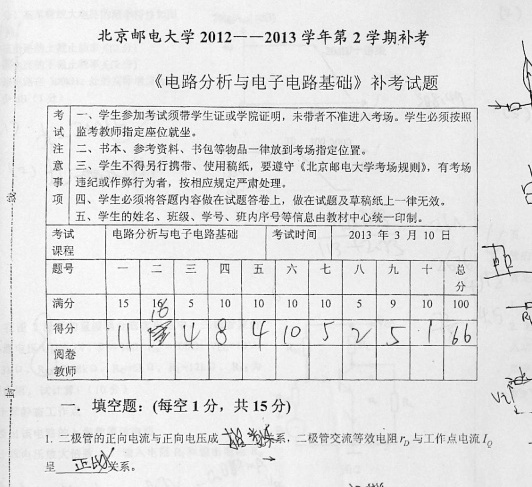 北京邮电大学 2012——2013 学年第 2 学期补考
《电路分析与电子电路基础》补考试题
考试注意事项
一、学生参加考试须带学生证或学院证明，未带者不准进入考场。学生必须按照
监考教师指定座位就坐。
二、书本、参考资料、书包等物品一律放到考场指定位置。
三、学生不得另行携带、使用稿纸，要遵守《北京邮电大学考场规则》，有考场
违纪或作弊行为者，按相应规定严肃处理。
四、学生必须将答题内容做在试题答卷上，做在试题及草稿纸上一律无效。
五、学生的姓名、班级、学号、班内序号等信息由教材中心统一印制。
考试课程 电路分析与电子电路基础 考试时间 2013 年 3 月 10 日
题号 一 二 三 四 五 六 七 八 九 十 总分
满分 15 16 5 10 10 10 10 5 9 10 100
得分 11 4 8 4 10 5 2 5 1 66
阅卷教师
填空题：(每空 1 分，共 15 分)
1. 二极管的正向电流与正向电压成 指数 关系，二极管交流等效电阻 r_D 与工作点电流 I_Q
呈 正比 关系。